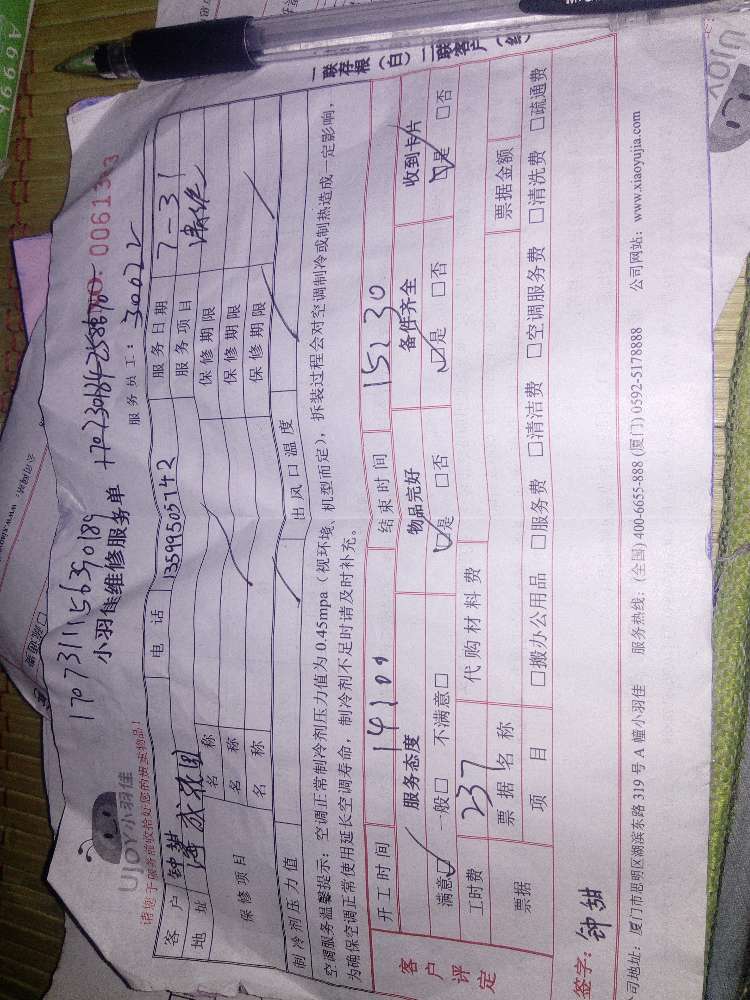 一联存根（白）二联客户（红
UJOY小羽佳
请您于服务前收拾好您的贵重物品！
17073111156390189
小羽佳维修服务单
NO: 00613
服务员工：30022
客户 钟甜 电话 13599505742 服务日期 7-31
地址 服务项目 清洗
保修项目 名称 保修期限
名称 保修期限
名称 保修期限
制冷剂压力值 出风口温度
空调服务温馨提示：空调正常制冷剂压力值为0.45mpa（视环境、机型而定），拆装过程会对空调制冷或制热造成一定影响，
为确保空调正常使用延长空调寿命，制冷剂不足时请及时补充。
开工时间 14:09 结束时间 15:30
客户评定 服务态度 物品完好 备件齐全 收到卡片
满意☑ 一般□ 不满意□ ☑是 □否 ☑是 □否 ☑是 □否
工时费 237 代购材料费
票据 票据名称 票据金额
项目 □搬办公用品 □服务费 □清洁费 □空调服务费 □清洗费 □疏通费
签字：钟甜
司地址：厦门市思明区湖滨东路319号A幢小羽佳 服务热线：(全国) 400-6655-888 (厦门) 0592-5178888 公司网站：www.xiaoyujia.com